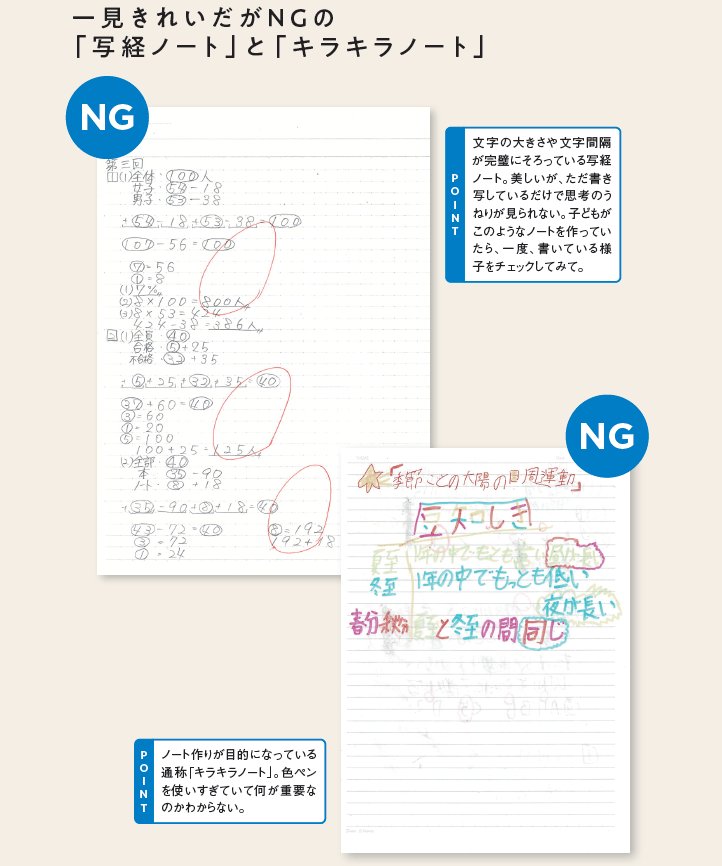 一見きれいだがNGの
「写経ノート」と「キラキラノート」
NG
POINT
文字の大きさや文字間隔
が完璧にそろっている写経
ノート。美しいが、ただ書き
写しているだけで思考のう
ねりが見られない。子どもが
このようなノートを作ってい
たら、一度、書いている様
子をチェックしてみて。
第三回
1(1)全体・100人
女子・54-18
男子・53-38
+54-18+53-38=100
107-56=100
⑦=56
①=8
(1)7‰
(2)8×100=800人
(3)8×53=424
424-38=386人
2(1)全員・40
合格・⑤+25
不合格・32+35
+⑤+25+32+35=40
37+60=40
③=60
①=20
⑤=100
100+25=125人
(2)全部・40
本・35-90
ノート・⑧+18
+35-90+⑧+18=40
43-72=40
③=72
①=24
⑧=192
192+18
NG
「季節ごとの太陽の日周運動」
豆知しき
夏至 1年の中でもっとも高い 昼が長い
冬至 1年の中でもっとも低い
夜が長い
春分 秋分 夏至と冬至の間 同じ
POINT
ノート作りが目的になっている
通称「キラキラノート」。色ペン
を使いすぎていて何が重要な
のかわからない。